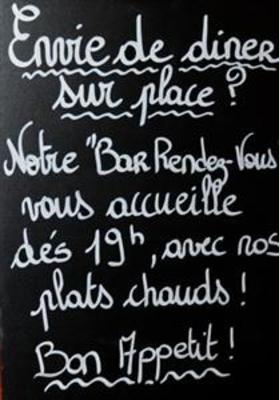 Envie de diner
sur place ?
Notre "Bar Rendez-Vous
vous accueille
dés 19h, avec nos
plats chauds !
Bon Appetit !